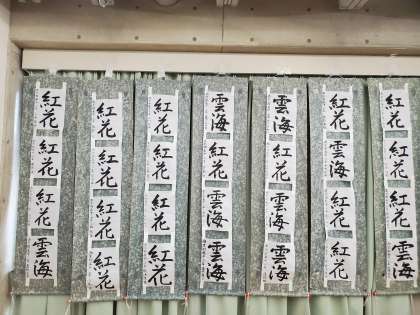 紅花
紅花
紅花
雲海
紅花
雲海
紅花
紅花
雲海
紅花
雲海
雲海
雲海
紅花
雲海
雲海
紅花
紅花
紅花
紅花
紅花
紅花
紅花
紅花
紅花
紅花
紅花
雲海